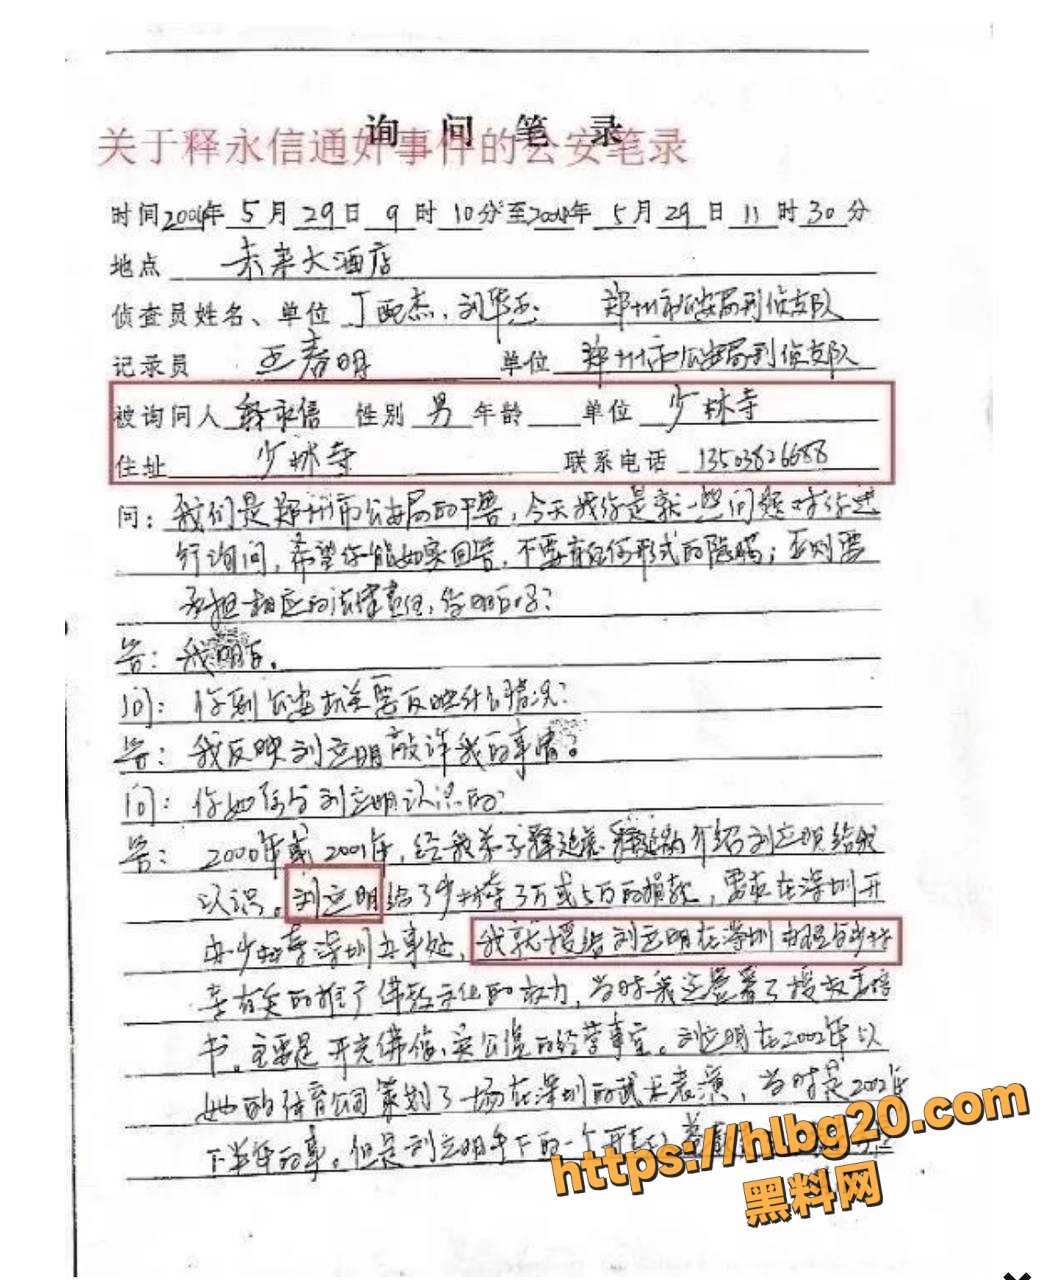 询问笔录
关于释永信通奸事件的公安笔录
时间2004年5月29日9时10分至2004年5月29日11时30分
地点 未来大酒店
侦查员姓名、单位 丁 杰、刘华 郑州市公安局刑侦支队
记录员 明 单位 郑州市公安局刑侦支队
被询问人 释永信 性别 男 年龄 单位 少林寺
住址 少林寺 联系电话 13503826688
问：我们是郑州市公安局的干警，今天找你是就一些问题对你进
行询问，希望你能如实回答，不要有任何形式的隐瞒；否则要
承担相应的法律责任，你明白吗？
答：我明白。
问：你到公安机关要反映什么情况？
答：我反映刘立明敲诈我的事情。
问：你如何与刘立明认识的？
答：2000年或2001年，经我弟子释延 介绍刘立明给我
认识。刘立明给了少林寺3万或5万的捐款，要求在深圳开
办少林寺深圳办事处，我就授给刘立明在深圳办理与少林
寺有关的推广佛教文化的权力，当时我还签署了授权委托
书。主要是开光佛像、 的经营事宜。刘立明在2002年以
她的体育公司策划了一场在深圳的武术表演，当时是2002年
下半年的事。但是刘立明手下的一个
https://hlbg20.com
黑料网